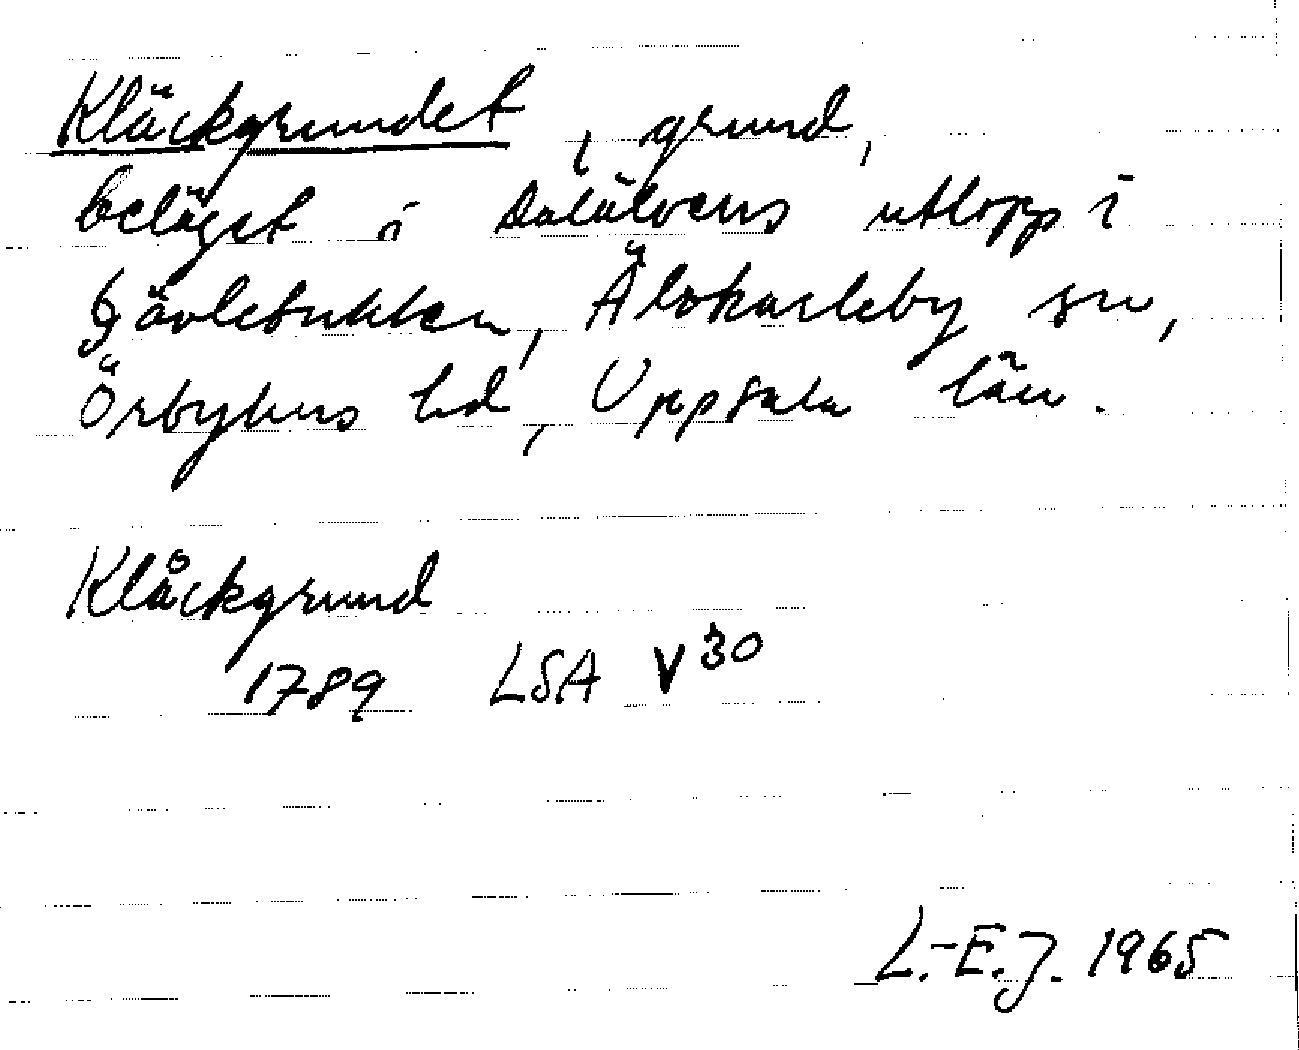 Kläckgrundet, grund,
beläget i Dalälvens utlopp i
Gävlebukten, Älvkarleby sn,
Örbyhus hd, Uppsala län.
Klåckgrund
1789 LSA V 30
L.-E.J. 1965